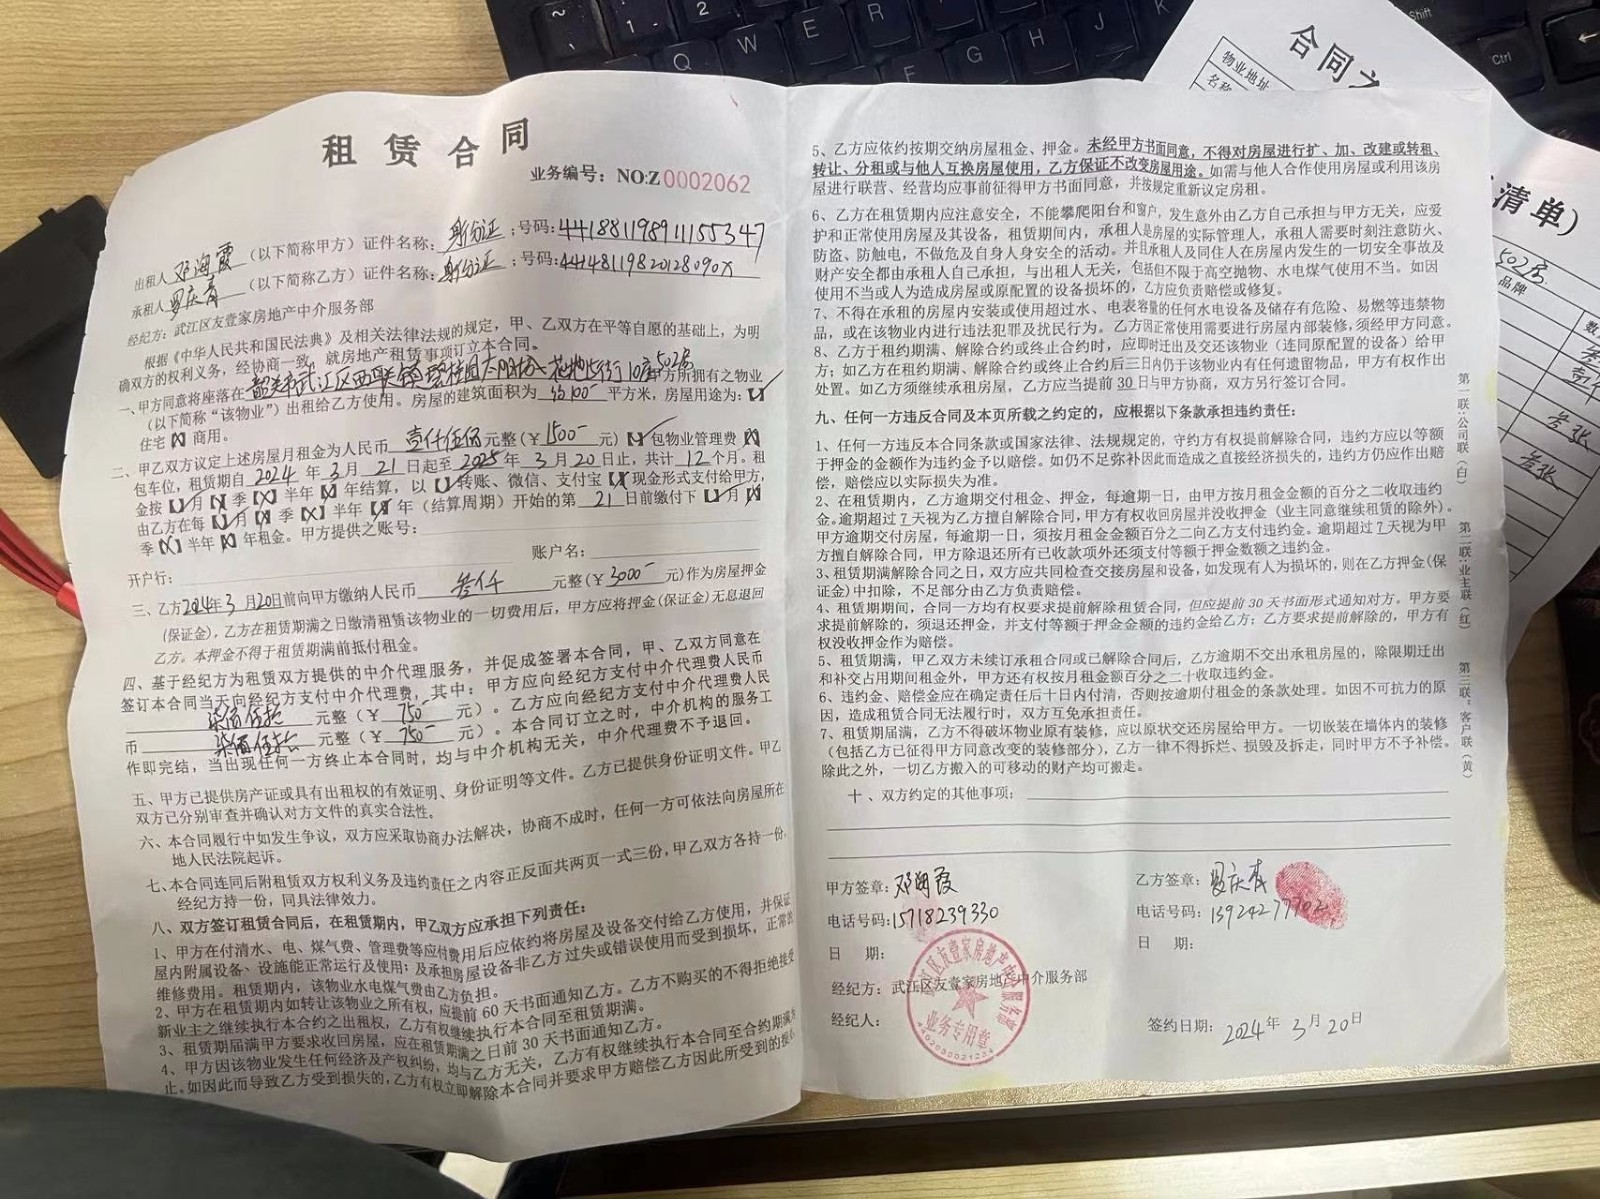 租赁合同
业务编号：NO:Z0002062
出租人 邓海霞（以下简称甲方）证件名称：身份证；号码：441881198911155347
承租人 罗庆青（以下简称乙方）证件名称：身份证；号码：44148119820128090X
经纪方：武江区友壹家房地产中介服务部
根据《中华人民共和国民法典》及相关法律法规的规定，甲、乙双方在平等自愿的基础上，为明
确双方的权利义务，经协商一致，就房地产租赁事项订立本合同。
一、甲方同意将座落在 韶关市武江区西联镇碧桂园太阳城 花地 10座502房 甲方所拥有之物业
（以下简称“该物业”）出租给乙方使用。房屋的建筑面积为 约100 平方米，房屋用途为：【√】
住宅【X】商用。
二、甲乙双方议定上述房屋月租金为人民币 壹仟伍佰 元整（￥1500- 元）【√】包物业管理费【X】
包车位，租赁期自 2024 年 3 月 21 日起至 2025 年 3 月 20 日止，共计 12 个月。租
金按【√】月【X】季【X】半年【X】年结算，以【√】转账、微信、支付宝【X】现金形式支付给甲方，
由乙方在每【√】月【X】季【X】半年【X】年（结算周期）开始的第 21 日前缴付下【√】月【X】
季【X】半年【X】年租金。甲方提供之账号：
开户行： 账户名：
三、乙方2024年3月20日前向甲方缴纳人民币 叁仟 元整（￥3000- 元）作为房屋押金
(保证金)，乙方在租赁期满之日缴清租赁该物业的一切费用后，甲方应将押金(保证金)无息退回
乙方。本押金不得于租赁期满前抵付租金。
四、基于经纪方为租赁双方提供的中介代理服务，并促成签署本合同，甲、乙双方同意在
签订本合同当天向经纪方支付中介代理费，其中：甲方应向经纪方支付中介代理费人民币
柒佰伍拾 元整（￥ 750- 元）。乙方应向经纪方支付中介代理费人民
币 柒佰伍拾 元整（￥ 750- 元）。本合同订立之时，中介机构的服务工
作即完结，当出现任何一方终止本合同时，均与中介机构无关，中介代理费不予退回。
五、甲方已提供房产证或具有出租权的有效证明、身份证明等文件。乙方已提供身份证明文件。甲乙
双方已分别审查并确认对方文件的真实合法性。
六、本合同履行中如发生争议，双方应采取协商办法解决，协商不成时，任何一方可依法向房屋所在
地人民法院起诉。
七、本合同连同后附租赁双方权利义务及违约责任之内容正反面共两页一式三份，甲乙双方各持一份，
经纪方持一份，同具法律效力。
八、双方签订租赁合同后，在租赁期内，甲乙双方应承担下列责任：
1、甲方在付清水、电、煤气费、管理费等应付费用后应依约将房屋及设备交付给乙方使用，并保证
屋内附属设备、设施能正常运行及使用；及承担房屋设备非乙方过失或错误使用而受到损坏，正常的
维修费用。租赁期内，该物业水电煤气费由乙方负担。
2、甲方在租赁期内如转让该物业之所有权，应提前60天书面通知乙方。乙方不购买的不得拒绝接受
新业主之继续执行本合约之出租权，乙方有权继续执行本合同至租赁期满。
3、租赁期届满甲方要求收回房屋，应在租赁期满之日前30天书面通知乙方。
4、甲方因该物业发生任何经济及产权纠纷，均与乙方无关，乙方有权继续执行本合同至合约期满为
止。如因此而导致乙方受到损失的，乙方有权立即解除本合同并要求甲方赔偿乙方因此所受到的损失。
5、乙方应依约按期交纳房屋租金、押金。未经甲方书面同意，不得对房屋进行扩、加、改建或转租、
转让、分租或与他人互换房屋使用，乙方保证不改变房屋用途。如需与他人合作使用房屋或利用该房
屋进行联营、经营均应事前征得甲方书面同意，并按规定重新议定房租。
6、乙方在租赁期内应注意安全，不能攀爬阳台和窗户，发生意外由乙方自己承担与甲方无关，应爱
护和正常使用房屋及其设备，租赁期间内，承租人是房屋的实际管理人，承租人需要时刻注意防火、
防盗、防触电，不做危及自身人身安全的活动。并且承租人及同住人在房屋内发生的一切安全事故及
财产安全都由承租人自己承担，与出租人无关，包括但不限于高空抛物、水电煤气使用不当。如因
使用不当或人为造成房屋或原配置的设备损坏的，乙方应负责赔偿或修复。
7、不得在承租的房屋内安装或使用超过水、电表容量的任何水电设备及储存有危险、易燃等违禁物
品，或在该物业内进行违法犯罪及扰民行为。乙方因正常使用需要进行房屋内部装修，须经甲方同意。
8、乙方于租约期满、解除合约或终止合约时，应即时迁出及交还该物业（连同原配置的设备）给甲
方；如乙方在租约期满、解除合约或终止合约后三日内仍于该物业内有任何遗留物品，甲方有权作出
处置。如乙方须继续承租房屋，乙方应当提前30日与甲方协商，双方另行签订合同。
九、任何一方违反合同及本页所载之约定的，应根据以下条款承担违约责任：
1、任何一方违反本合同条款或国家法律、法规规定的，守约方有权提前解除合同，违约方应以等额
于押金的金额作为违约金予以赔偿。如仍不足弥补因此而造成之直接经济损失的，违约方仍应作出赔
偿，赔偿应以实际损失为准。
2、在租赁期内，乙方逾期交付租金、押金，每逾期一日，由甲方按月租金金额的百分之二收取违约
金。逾期超过7天视为乙方擅自解除合同，甲方有权收回房屋并没收押金（业主同意继续租赁的除外）。
甲方逾期交付房屋，每逾期一日，须按月租金金额百分之二向乙方支付违约金。逾期超过7天视为甲
方擅自解除合同，甲方除退还所有已收款项外还须支付等额于押金数额之违约金。
3、租赁期满解除合同之日，双方应共同检查交接房屋和设备，如发现有人为损坏的，则在乙方押金(保
证金)中扣除，不足部分由乙方负责赔偿。
4、租赁期期间，合同一方均有权要求提前解除租赁合同，但应提前30天书面形式通知对方。甲方要
求提前解除的，须退还押金，并支付等额于押金金额的违约金给乙方；乙方要求提前解除的，甲方有
权没收押金作为赔偿。
5、租赁期满，甲乙双方未续订承租合同或已解除合同后，乙方逾期不交出承租房屋的，除限期迁出
和补交占用期间租金外，甲方还有权按月租金额百分之二十收取违约金。
6、违约金、赔偿金应在确定责任后十日内付清，否则按逾期付租金的条款处理。如因不可抗力的原
因，造成租赁合同无法履行时，双方互免承担责任。
7、租赁期届满，乙方不得破坏物业原有装修，应以原状交还房屋给甲方。一切嵌装在墙体内的装修
（包括乙方已征得甲方同意改变的装修部分），乙方一律不得拆烂、损毁及拆走，同时甲方不予补偿。
除此之外，一切乙方搬入的可移动的财产均可搬走。
十、双方约定的其他事项：
甲方签章：邓海霞
电话号码：15718239330
日 期：
经纪方：武江区友壹家房地产中介服务部
经纪人：
乙方签章：罗庆青
电话号码：
日 期：
签约日期：2024年3月20日
武江区友壹家房地产中介服务部
业务专用章
第一联：公司联（白） 第二联：业主联（红） 第三联：客户联（黄）
合同之
清单）
物业地址
名称
502房
品牌
数
叁张